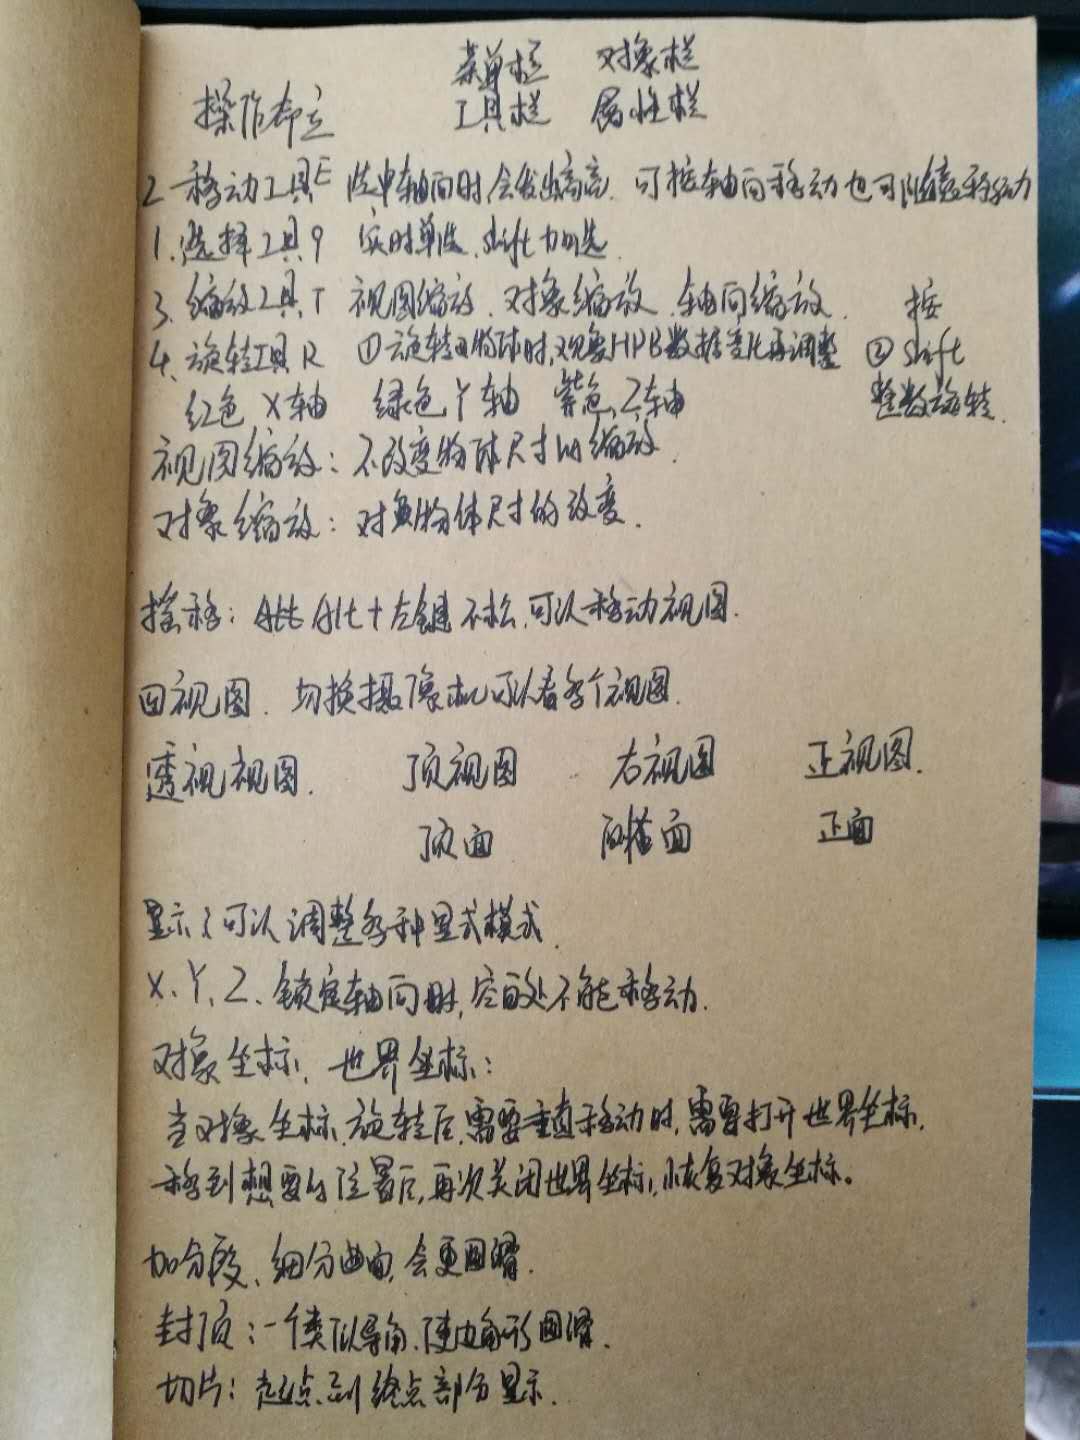 菜单栏 对象栏
操作 工具栏 属性栏
2 移动工具E 选中轴向时会发出高亮. 可按轴向移动也可随意移动
1、选择工具9 实时单选、shift加选.
3、缩放工具T 视图缩放、对象缩放、轴向缩放. 按
4、旋转工具R ①旋转物体时,观察HPB数据变化再调整 ② shift
红色X轴 绿色Y轴 紫色Z轴 整数旋转.
视图缩放：不改变物体尺寸的缩放.
对象缩放：对物体尺寸的改变.
摇移：Alt+左键不松,可以移动视图.
四视图. 切换摄像机可以看各个视图.
透视视图. 顶视图 右视图 正视图.
顶面 横面 正面
显示：可以调整各种显式模式.
X、Y、Z、锁定轴向时,空白处不能移动.
对象坐标、世界坐标：
当对象坐标旋转后,需要垂直移动时,需要打开世界坐标,
移到想要的位置后,再次关闭世界坐标,恢复对象坐标。
加分段、细分曲面,会更圆滑.
封顶：一个类似导角、使边角形圆滑.
切片：起点到终点部分显示.